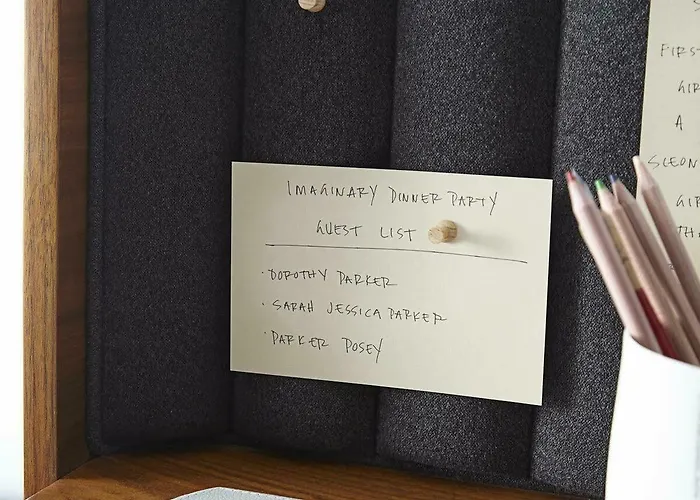 IMAGINARY DINNER PARTY
GUEST LIST
· DOROTHY PARKER
· SARAH JESSICA PARKER
· PARKER POSEY
FIRST
A